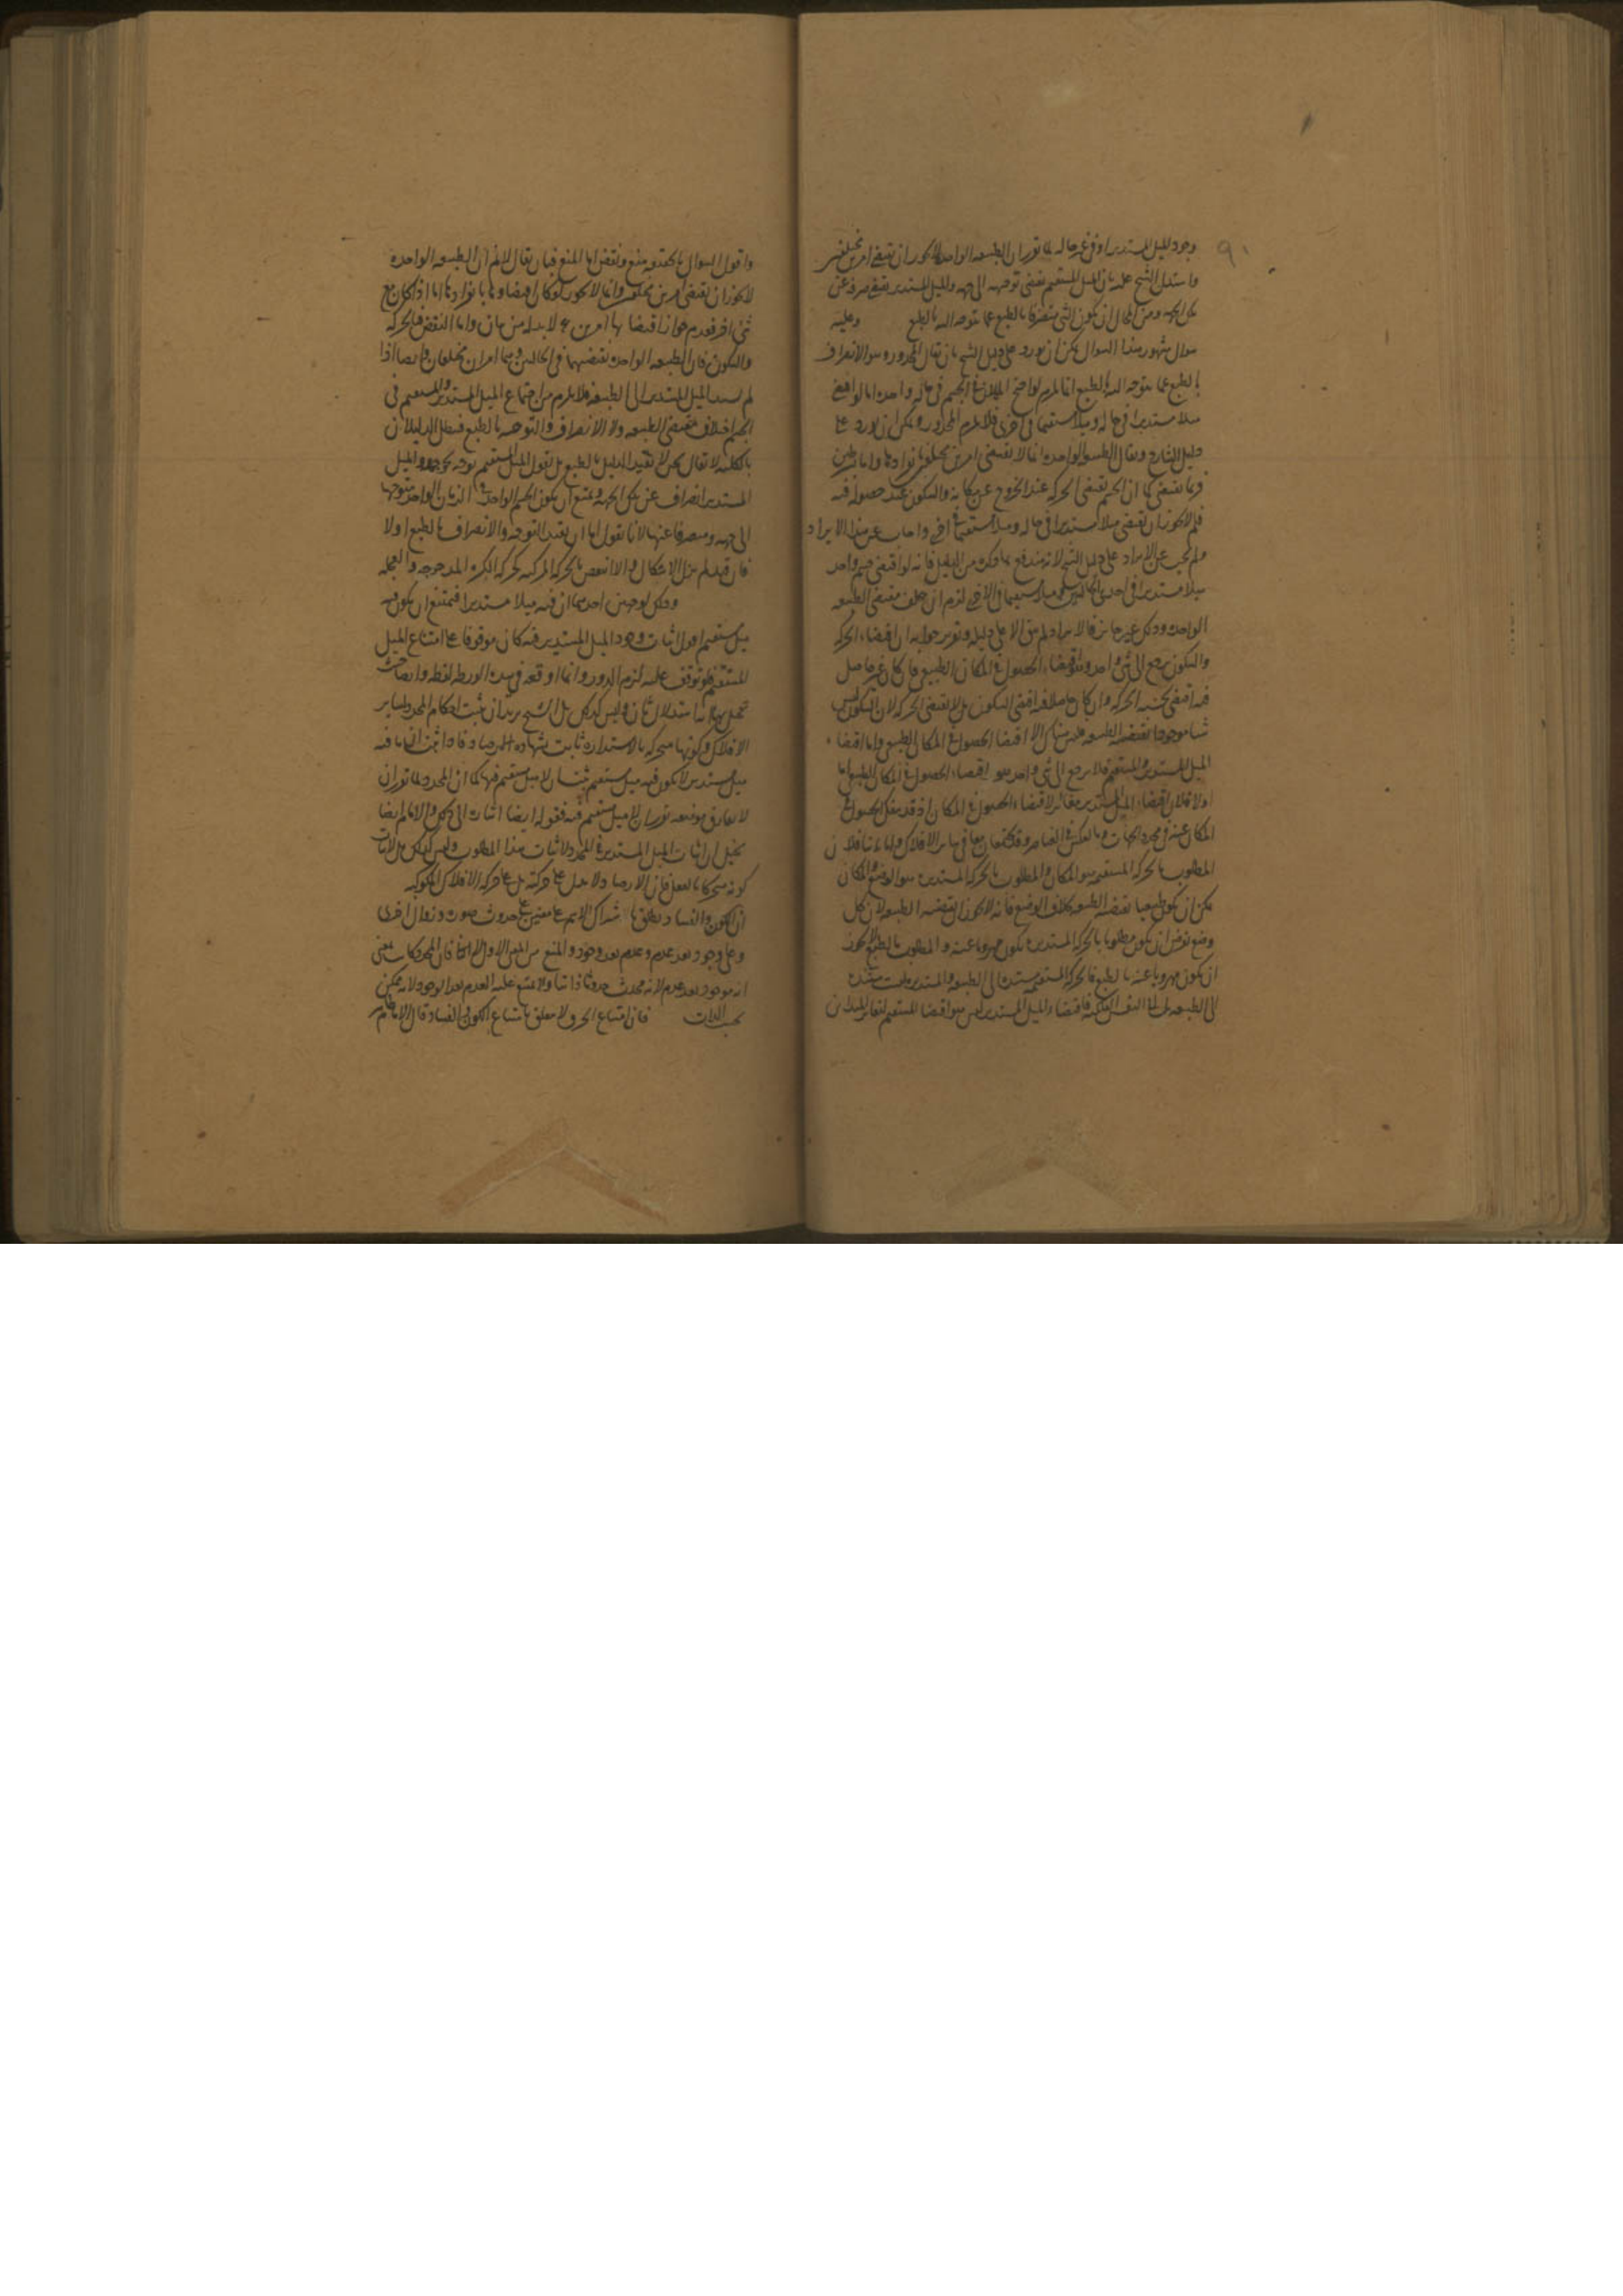 ٩١
وجود الميل المستدير او في غير حاله لما تقرر ان الطبيعه الواحده لا يجوز ان تقتضي امرين مختلفين
واستدل الشيخ عليه بان الميل المستقيم يقتضي توجهه الى جهه والميل المستدير يقتضي صرفه عن
تلك الجهه ومن المحال ان يكون الشي منصرفا بالطبع عما يتوجه اليه بالطبع وعليه
سوال مشهور هذا السوال يمكن ان يورد على دليل الشيخ بان يقال المحذور وهو الانصراف
بالطبع عما يتوجه اليه بالطبع انما يلزم لو اجتمع الميلان في الجسم في حاله واحده اما لو اقتضى
ميلا مستديرا في حاله وميلا مستقيما في اخرى فلا يلزم المحذور ويمكن ان يورد على
دليل الشارح ويقال الطبيعه الواحده انما لا تقتضي امرين مختلفين بانفرادها واما بشرطين
فربما تقتضي كما ان الجسم يقتضي الحركه عند الخروج عن مكانه والسكون عند حصوله فيه
فلم لا يجوز ان يقتضي ميلا مستديرا في حاله وميلا مستقيما في اخرى واجاب عن هذا الايراد
ولم يجب عن الايراد على دليل الشيخ لانه مندفع بما ذكره من الدليل فانه لو اقتضى جسم واحد
ميلا مستديرا في احدى الحالتين وميلا مستقيما في الاخرى لزم ان يختلف مقتضى الطبيعه
الواحده وذلك غير جايز فالايراد لم يبق الا على دليله وتقرير جوابه ان اقتضاء الحركه
والسكون يرجع الى شي واحد وهو اقتضاء الحصول في المكان الطبيعي فان كان غير حاصل
فيه اقتضى بحسبه الحركه وان كان حاصلا فيه اقتضى السكون بل لا يقتضي الحركه لان السكون ليس
شيا موجودا تقتضيه الطبيعه فليس هناك الا اقتضا الحصول في المكان الطبيعي واما اقتضاء
الميل المستدير والمستقيم فلا يرجع الى شي واحد هو اقتضاء الحصول في المكان الطبيعي اما
اولا فلان اقتضاء الميل المستدير مغاير لاقتضاء الحصول في المكان اذ قد ينفك الحصول في
المكان عنه في محدد الجهات وبالعكس في العناصر وقد يجتمعان معا في سائر الافلاك واما ثانيا فلان
المطلوب بالحركه المستقيمه هو المكان والمطلوب بالحركه المستديره هو الوضع والمكان
يمكن ان يكون طبيعيا تقتضيه الطبيعه بخلاف الوضع فانه لا يجوز ان تقتضيه الطبيعه لان كل
وضع نفرض ان يكون مطلوبا بالحركه المستديره يكون مهروبا عنه والمطلوب بالطبع لا يجوز
ان يكون مهروبا عنه بالطبع فالحركه المستقيمه مستنده الى الطبيعه والمستديره ليست مستنده
الى الطبيعه بل الى النفس الفلكيه فاقتضاء الميل المستدير ليس هو اقتضا المستقيم لتغاير المبدأين
واقول السوال بالحقيقه منع ونقض اما المنع فبان يقال لا نم ان الطبيعه الواحده
لا يجوز ان تقتضي امرين مختلفين وانما لا يجوز لو كان اقتضاوها بانفرادها اما اذا كان مع
شي اخر فعدم جواز اقتضا بها امرين لا بد له من بيان واما النقض فبالحركه
والسكون فان الطبيعه الواحده تقتضيهما في الحالين وهما امران مختلفان وايضا اذا
لم يستند الميل المستدير الى الطبيعه فلا يلزم من اجتماع الميل المستدير والمستقيم في
الجسم اختلاف مقتضى الطبيعه ولا الانصراف والتوجه بالطبع فبطل الدليلان
بالكليه لا يقال نحن لا نقيد الدليل بالطبع بل نقول الميل المستقيم توجه نحو جهه والميل
المستدير انصراف عن تلك الجهه ويمتنع ان يكون الجسم الواحد في الزمان الواحد متوجها
الى جهه ومنصرفا عنها لانا نقول اما ان يقيد التوجه والانصراف بالطبع اولا
فان قيد لم يزل الاشكال والا انتقض بالحركه المركبه كحركه الكره المدحرجه والعجله
وذلك لوجهين احدهما ان فيه ميلا مستديرا فيمتنع ان يكون فيه
ميل مستقيم اقول اثبات وجود الميل المستدير فيه كان موقوفا على امتناع الميل
المستقيم فلو توقف عليه لزم الدور وانما اوقعه في هذه الورطه لفظه وايضا حيث
تخيل بها انه استدلال ثان وليس كذلك بل الشيخ يريد ان يثبت احكام المحدد لساير
الافلاك وكونها متحركه بالاستداره ثابت بشهاده الارصاد فاذا ثبت ان ما فيه
ميل مستدير لا يكون فيه ميل مستقيم ثبت ان لا ميل مستقيم فيها كما ان المحدد لما تقرر ان
لا يفارق موضعه تقرر ان لا ميل مستقيم فيه فقوله ايضا اشارت الى ذلك والامام ايضا
تخيل ان اثبات الميل المستدير في المحدد لاثبات هذا المطلوب وليس كذلك بل لاثبات
كونه متحركا بالفعل فان الارصاد لا يدل على حركته بل على حركه الافلاك المكوكبه
ان الكون والفساد يطلق باشتراك الاسم على معنيين على حدوث صورت وزوال اخرى
وعلى وجود بعد عدم وعدم بعد وجود والمنع من المعنى الاول لا الثاني فان المحدد كان بمعنى
انه موجود بعد عدم لانه محدث حدوثا ذاتيا ولا يمتنع عليه العدم بعد الوجود لانه ممكن
بحسب الذات فان امتناع الخرق لا يتعلق بامتناع الكون والفساد قال الامام